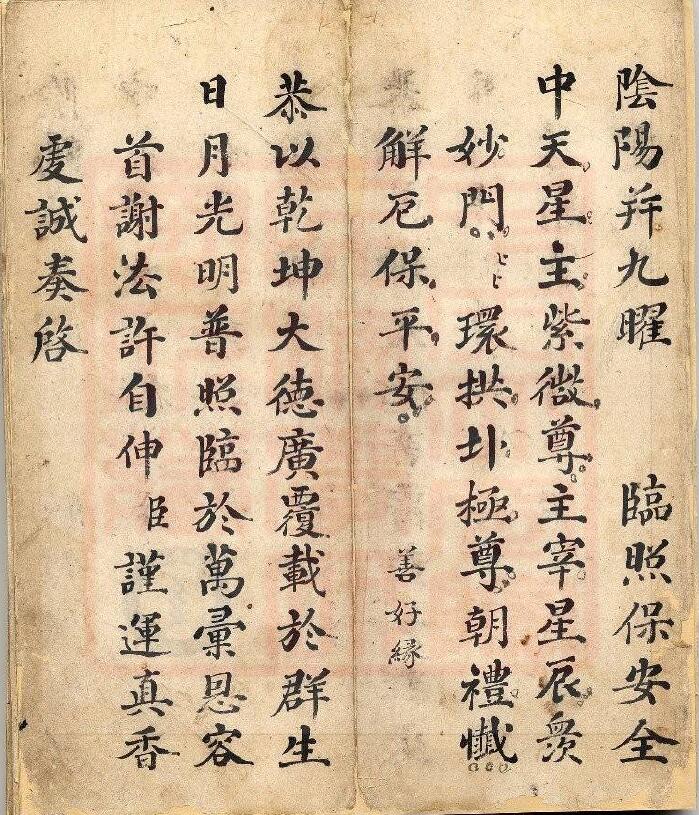 陰陽并九曜 臨照保安全
中天星主紫微尊主宰星辰衆
妙門 〻環拱北極尊朝禮懺
解厄保平安 善好緣
恭以乾坤大德廣覆載於群生
日月光明普照臨於萬彙恩容
首謝法許自伸臣謹運真香
虔誠奏啓